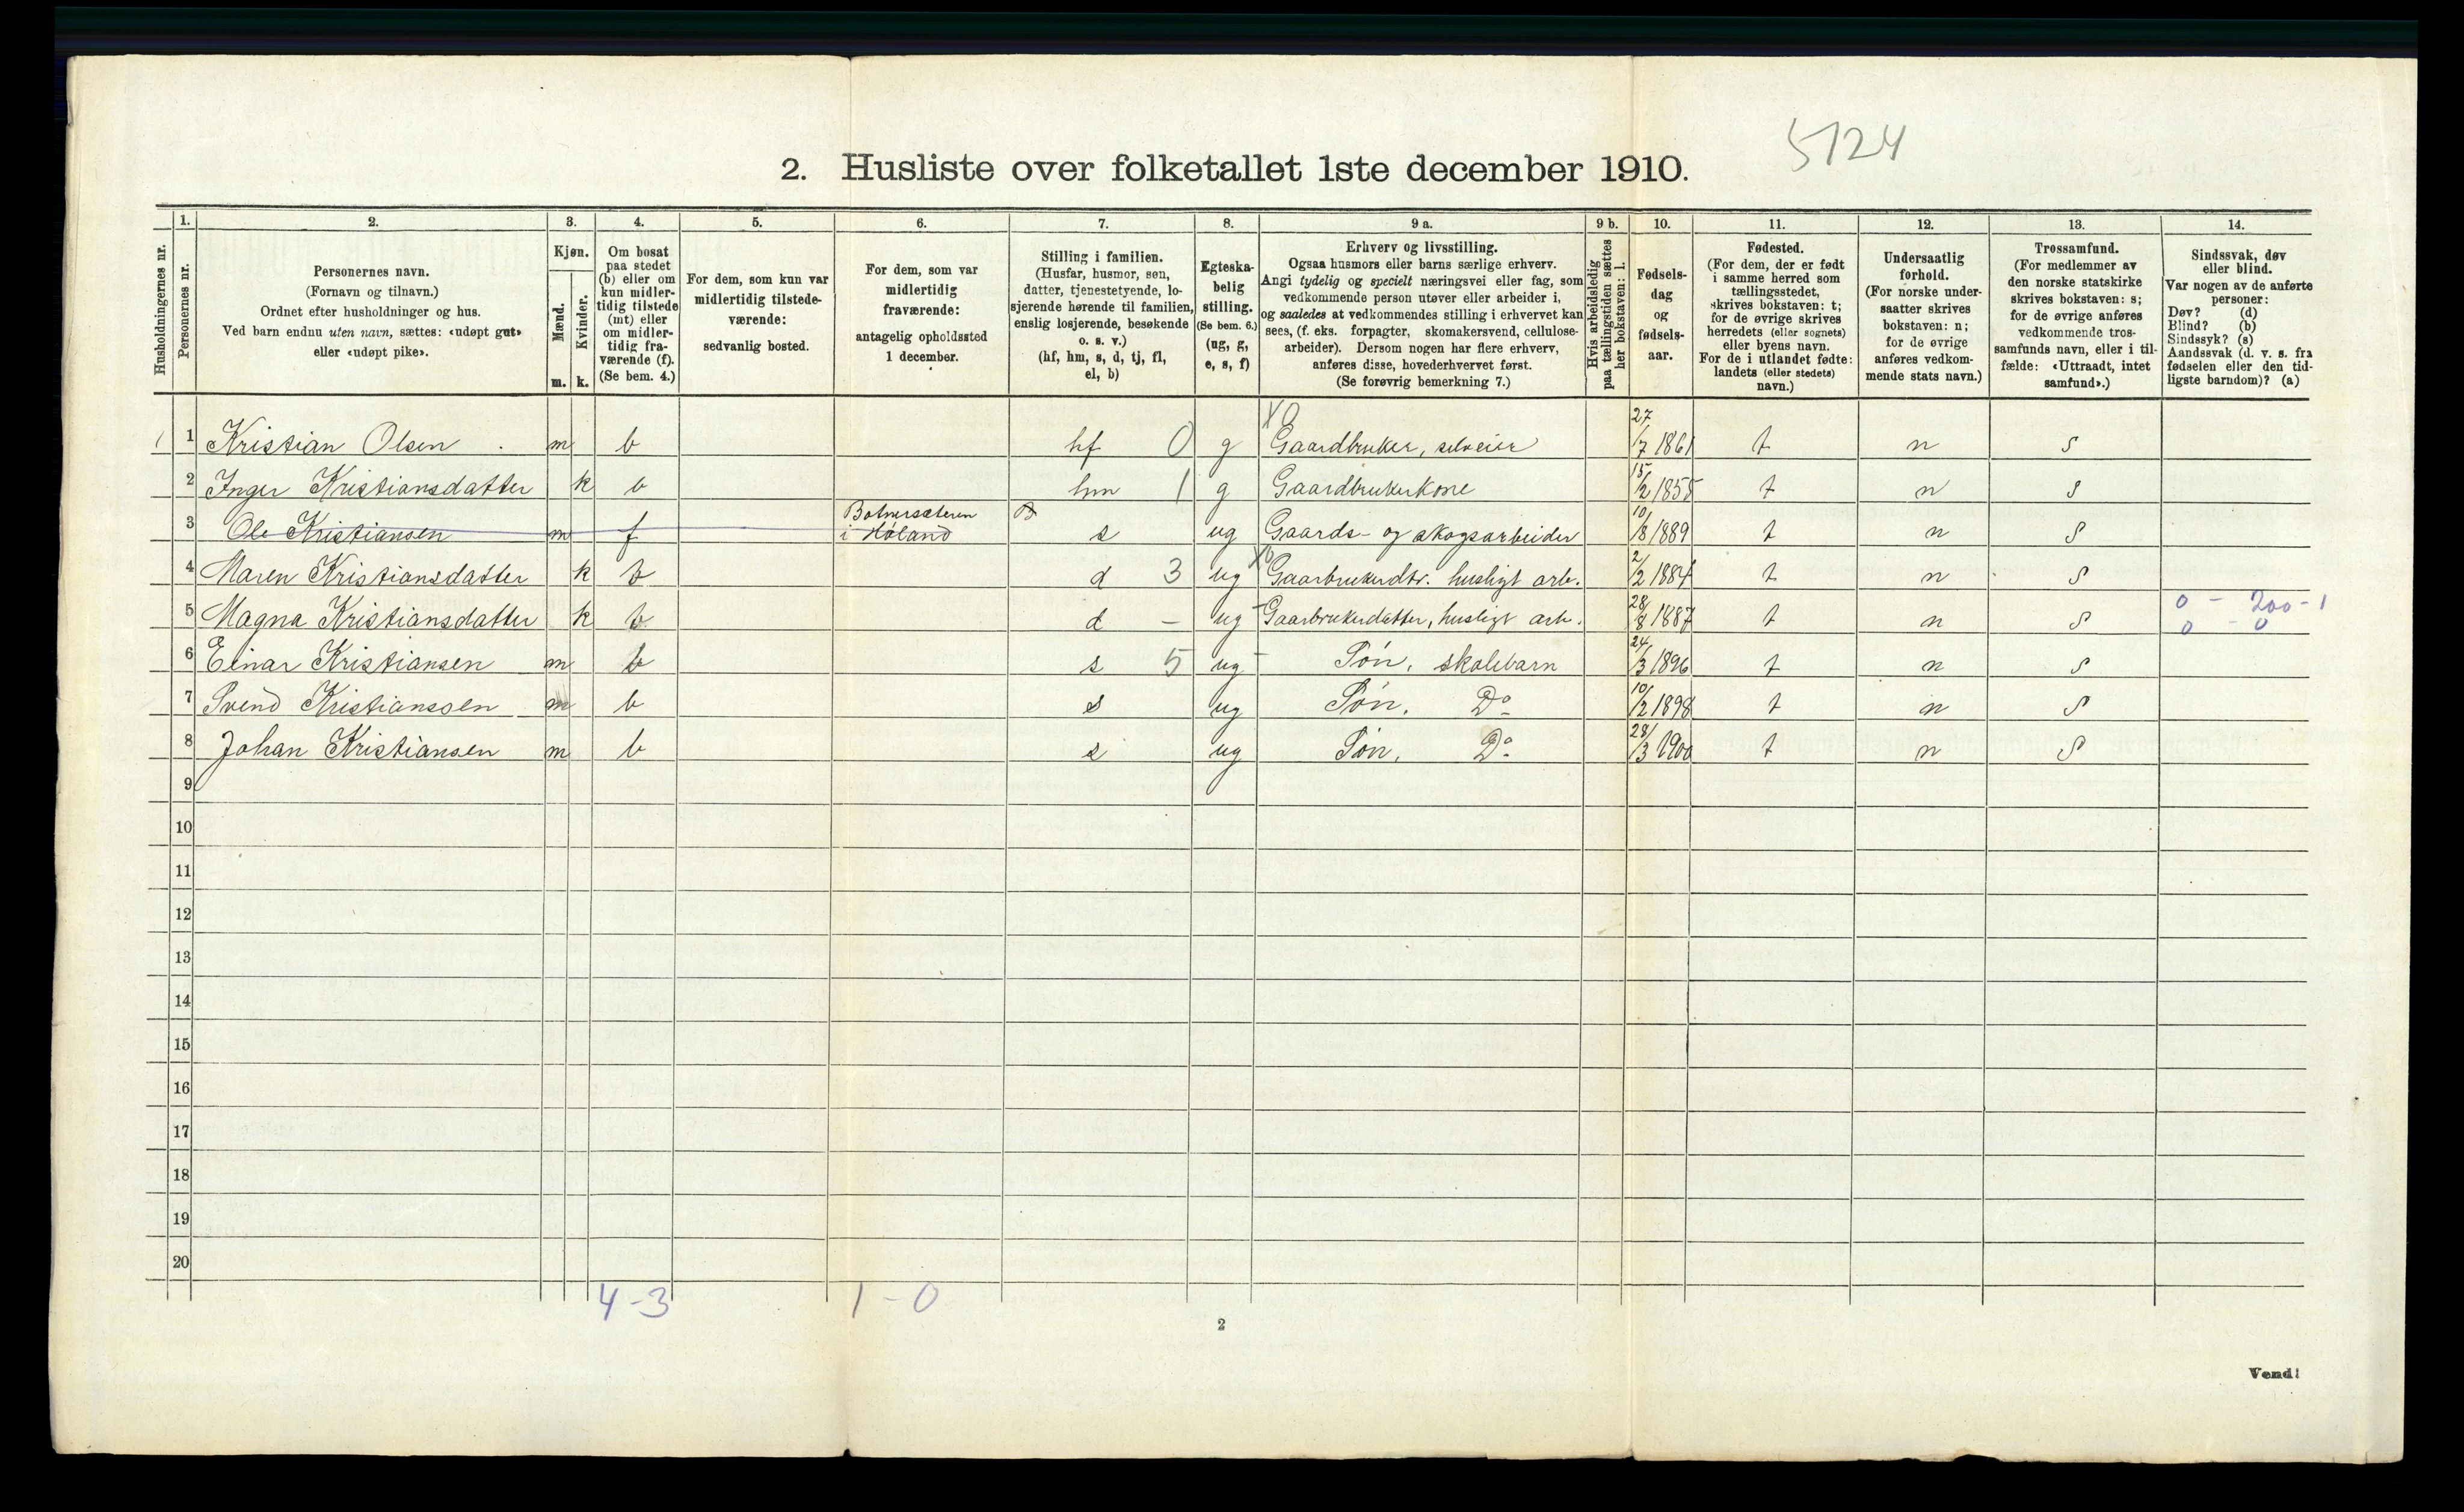 5124
2. Husliste over folketallet 1ste december 1910.
Husholdningernes nr.
1.
Personernes nr.
2.
Personernes navn.
(Fornavn og tilnavn.)
Ordnet efter husholdninger og hus.
Ved barn endnu uten navn, sættes: «udøpt gut»
eller «udøpt pike».
3.
Kjøn.
Mænd.
m.
Kvinder.
k.
4.
Om bosat
paa stedet
(b) eller om
kun midler-
tidig tilstede
(mt) eller
om midler-
tidig fra-
værende (f).
(Se bem. 4.)
5.
For dem, som kun var
midlertidig tilstede-
værende:
sedvanlig bosted.
6.
For dem, som var
midlertidig
fraværende:
antagelig opholdssted
1 december.
7.
Stilling i familien.
(Husfar, husmor, søn,
datter, tjenestetyende, lo-
sjerende hørende til familien,
enslig losjerende, besøkende
o. s. v.)
(hf, hm, s, d, tj, fl,
el, b)
8.
Egteska-
belig
stilling.
(Se bem. 6.)
(ug, g,
e, s, f)
9 a.
Erhverv og livsstilling.
Ogsaa husmors eller barns særlige erhverv.
Angi tydelig og specielt næringsvei eller fag, som
vedkommende person utøver eller arbeider i,
og saaledes at vedkommendes stilling i erhvervet kan
sees, (f. eks. forpagter, skomakersvend, cellulose-
arbeider). Dersom nogen har flere erhverv,
anføres disse, hovederhvervet først.
(Se forøvrig bemerkning 7.)
9 b.
Hvis arbeidsledig
paa tællingstiden sættes
her bokstaven: l.
10.
Fødsels-
dag
og
fødsels-
aar.
11.
Fødested.
(For dem, der er født
i samme herred som
tællingsstedet,
skrives bokstaven: t;
for de øvrige skrives
herredets (eller sognets)
eller byens navn.
For de i utlandet fødte:
landets (eller stedets)
navn.)
12.
Undersaatlig
forhold.
(For norske under-
saatter skrives
bokstaven: n;
for de øvrige
anføres vedkom-
mende stats navn.)
13.
Trossamfund.
(For medlemmer av
den norske statskirke
skrives bokstaven: s;
for de øvrige anføres
vedkommende tros-
samfunds navn, eller i til-
fælde: «Uttraadt, intet
samfund».)
14.
Sindssvak, døv
eller blind.
Var nogen av de anførte
personer:
Døv? (d)
Blind? (b)
Sindssyk? (s)
Aandssvak (d. v. s. fra
fødselen eller den tid-
ligste barndom)? (a)
1 1 Kristian Olsen m b hf 0 g X0 Gaardbruker, selveier 27/7 1861 t n s
2 Inger Kristiansdatter k b hm 1 g Gaardbrukerkone 15/2 1855 t n s
3 Ole Kristiansen m f Botnersæteren i Høland B s ug Gaards- og skogsarbeider 10/8 1889 t n s
4 Maren Kristiansdatter k b d 3 ug Gaarbrukerdtr. husligt arb. 2/2 1884 t n s
5 Magna Kristiansdatter k b d - ug - Gaarbrukerdatter, husligt arb. 28/8 1887 t n s 0 - 200 - 1
0 - 0
6 Einar Kristiansen m b s 5 ug - Søn, skolebarn 24/3 1896 t n s
7 Svend Kristianssen m b s ug Søn. Do 10/2 1898 t n s
8 Johan Kristiansen m b s ug Søn, Do 28/3 1900 t n s
9
10
11
12
13
14
15
16
17
18
19
20
4 - 3 1 - 0
2
Vend!